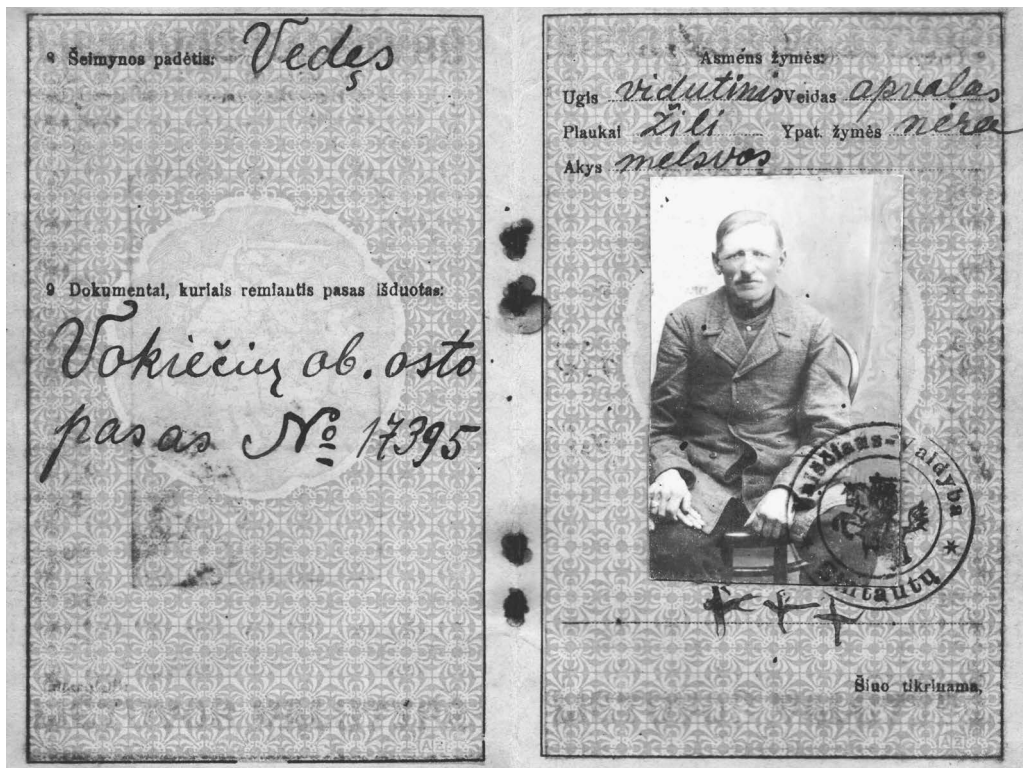 8 Šeimynos padėtis: Vedęs
9 Dokumentai, kuriais remiantis pasas išduotas:
Vokiečių ob. osto
pasas № 17395
Asmėns žymės:
Ugis vidutinis Veidas apvalas
Plaukai žili Ypat. žymės nėra
Akys mėlsvos
Valsčiaus-Valdyba * Sintautų
+ + +
Šiuo tikrinama,